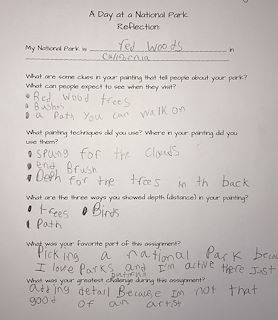 A Day at a National Park
Reflection:
My National Park is red woods in
California
What are some clues in your painting that tell people about your park?
What can people expect to see when they visit?
Red wood trees
Bushes
a Path you can walk on
What painting techniques did you use? Where in your painting did you
use them?
spung for the clouds
and Brush
Deph for the trees in th back
What are the three ways you showed depth (distance) in your painting?
trees Birds
Path
What was your favorite part of this assignment?
Picking a national Park becau
I love Parks and I'm active there Just
What was your greatest challenge during this assignment?
adding detail Because Im not that
good of an artist